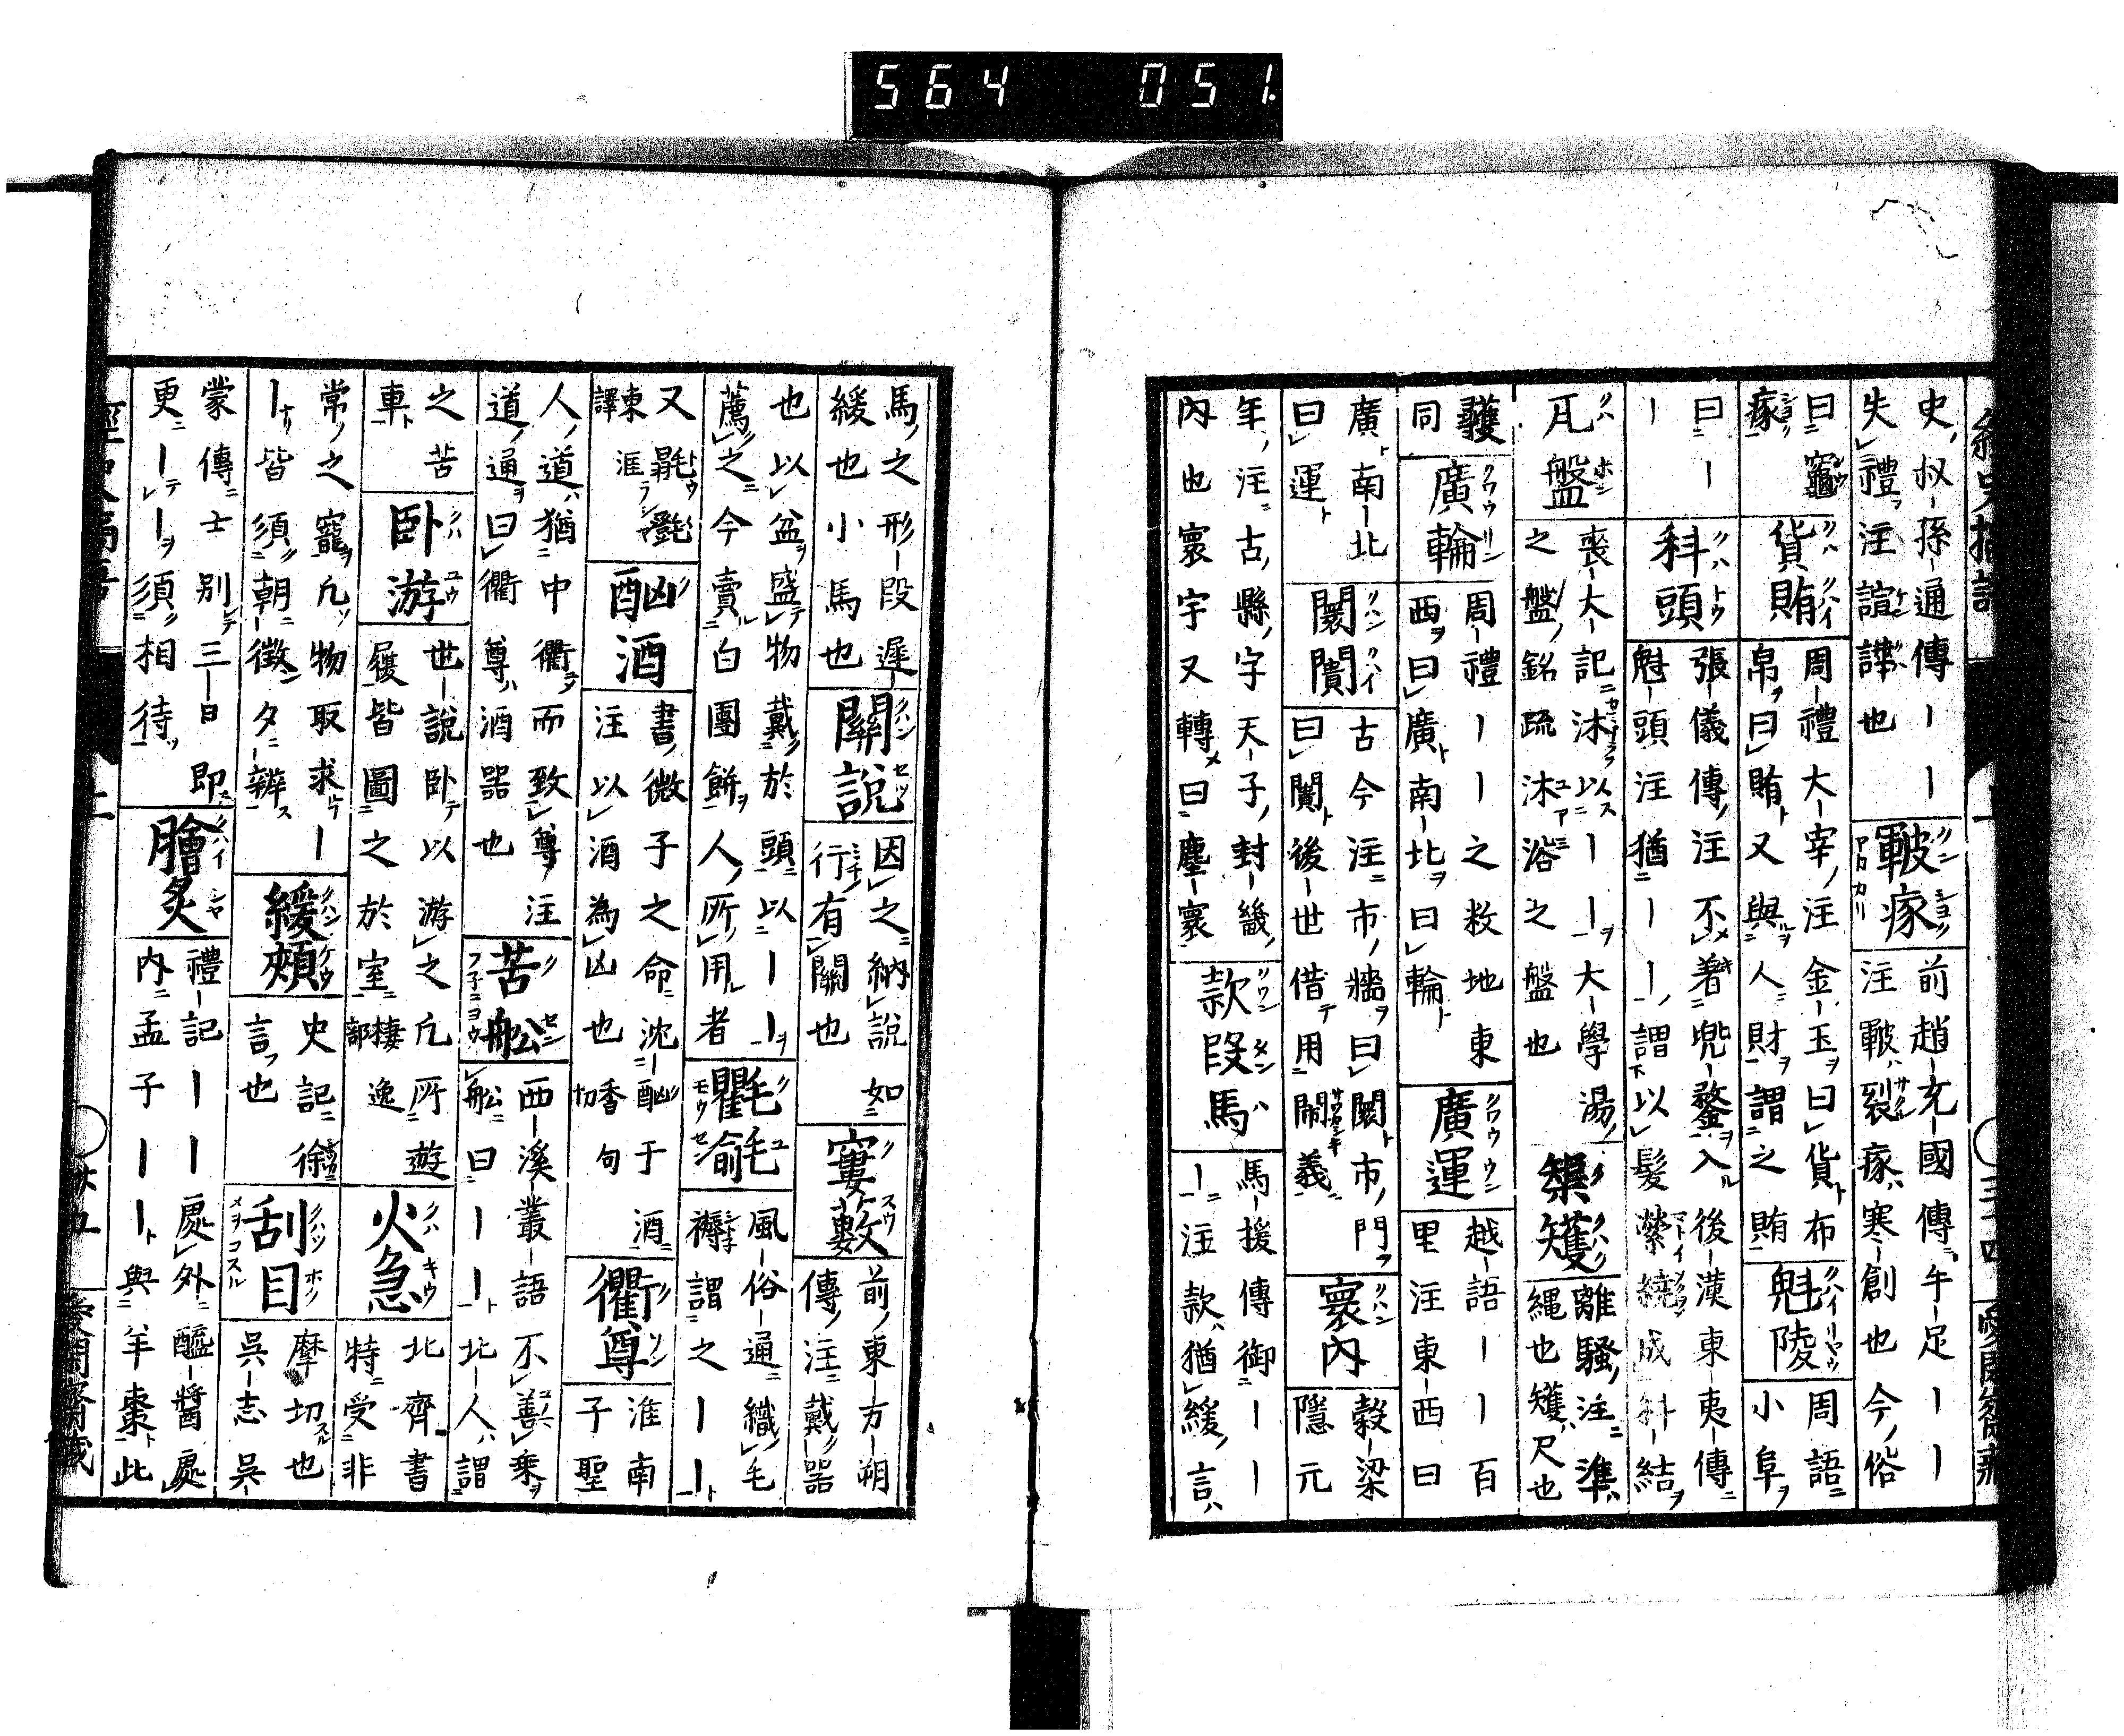 564 051
史叔孫通傳ーー
失禮注諠譁也
皸瘃
前趙充國傳牛足ーー
注皸裂瘃寒創也今俗
曰竈
瘃
貨賄
周禮大宰注金玉曰貨布
帛曰賄又與人財謂之賄
魁陵
周語
小阜
曰ー
ー
科頭
張儀傳注不著兜鍪入後漢東夷傳
魁頭注猶ーー謂以髮縈繞成科結
瓦盤
喪大記沐以ーー大學湯
之盤銘疏沐浴之盤也
榘矱
離騷注準
縄也矱尺也
矱
同
廣輪
周禮ーー之救地東
西曰廣南北曰輪
廣運
越語ーー百
里注東西曰
廣南北
曰運
闤闠
古今注市牆曰闤市門
曰闠後世借用閙義
寰內
穀梁
隱元
年注古縣字天子封畿
內也寰字又轉曰塵寰
款段馬
馬援傳御ーー
ー注款猶緩言
馬之形段遲
緩也小馬也
關說
因之納說如
行有關也
寠藪
前東方朔
傳注戴器
也以盆盛物戴於頭以ーー
薦之今賣白團餅人所用者
氍毹
風俗通織毛
褥謂之ーー
又毾㲪
東
譯
酗酒
書微子之命沈酗于酒
注以酒為凶也香句切
衢尊
淮南
子聖
人道猶中衢而致尊注
道通曰衢尊酒器也
苦舩
西溪叢語不善乘
舩曰ーー北人謂
之苦
車
卧游
世說卧以游之凡所遊
履皆圖之於室棲逸部
火急
北齊書
特受非
常之寵凡物取求ー
ー皆須朝徵夕辨
緩頰
史記徐
言也
刮目
摩切也
吳志吳
蒙傳士別三日即
更ーー須相待
膾炙
禮記ーー處外醢醬處
內孟子ーー與羊棗此